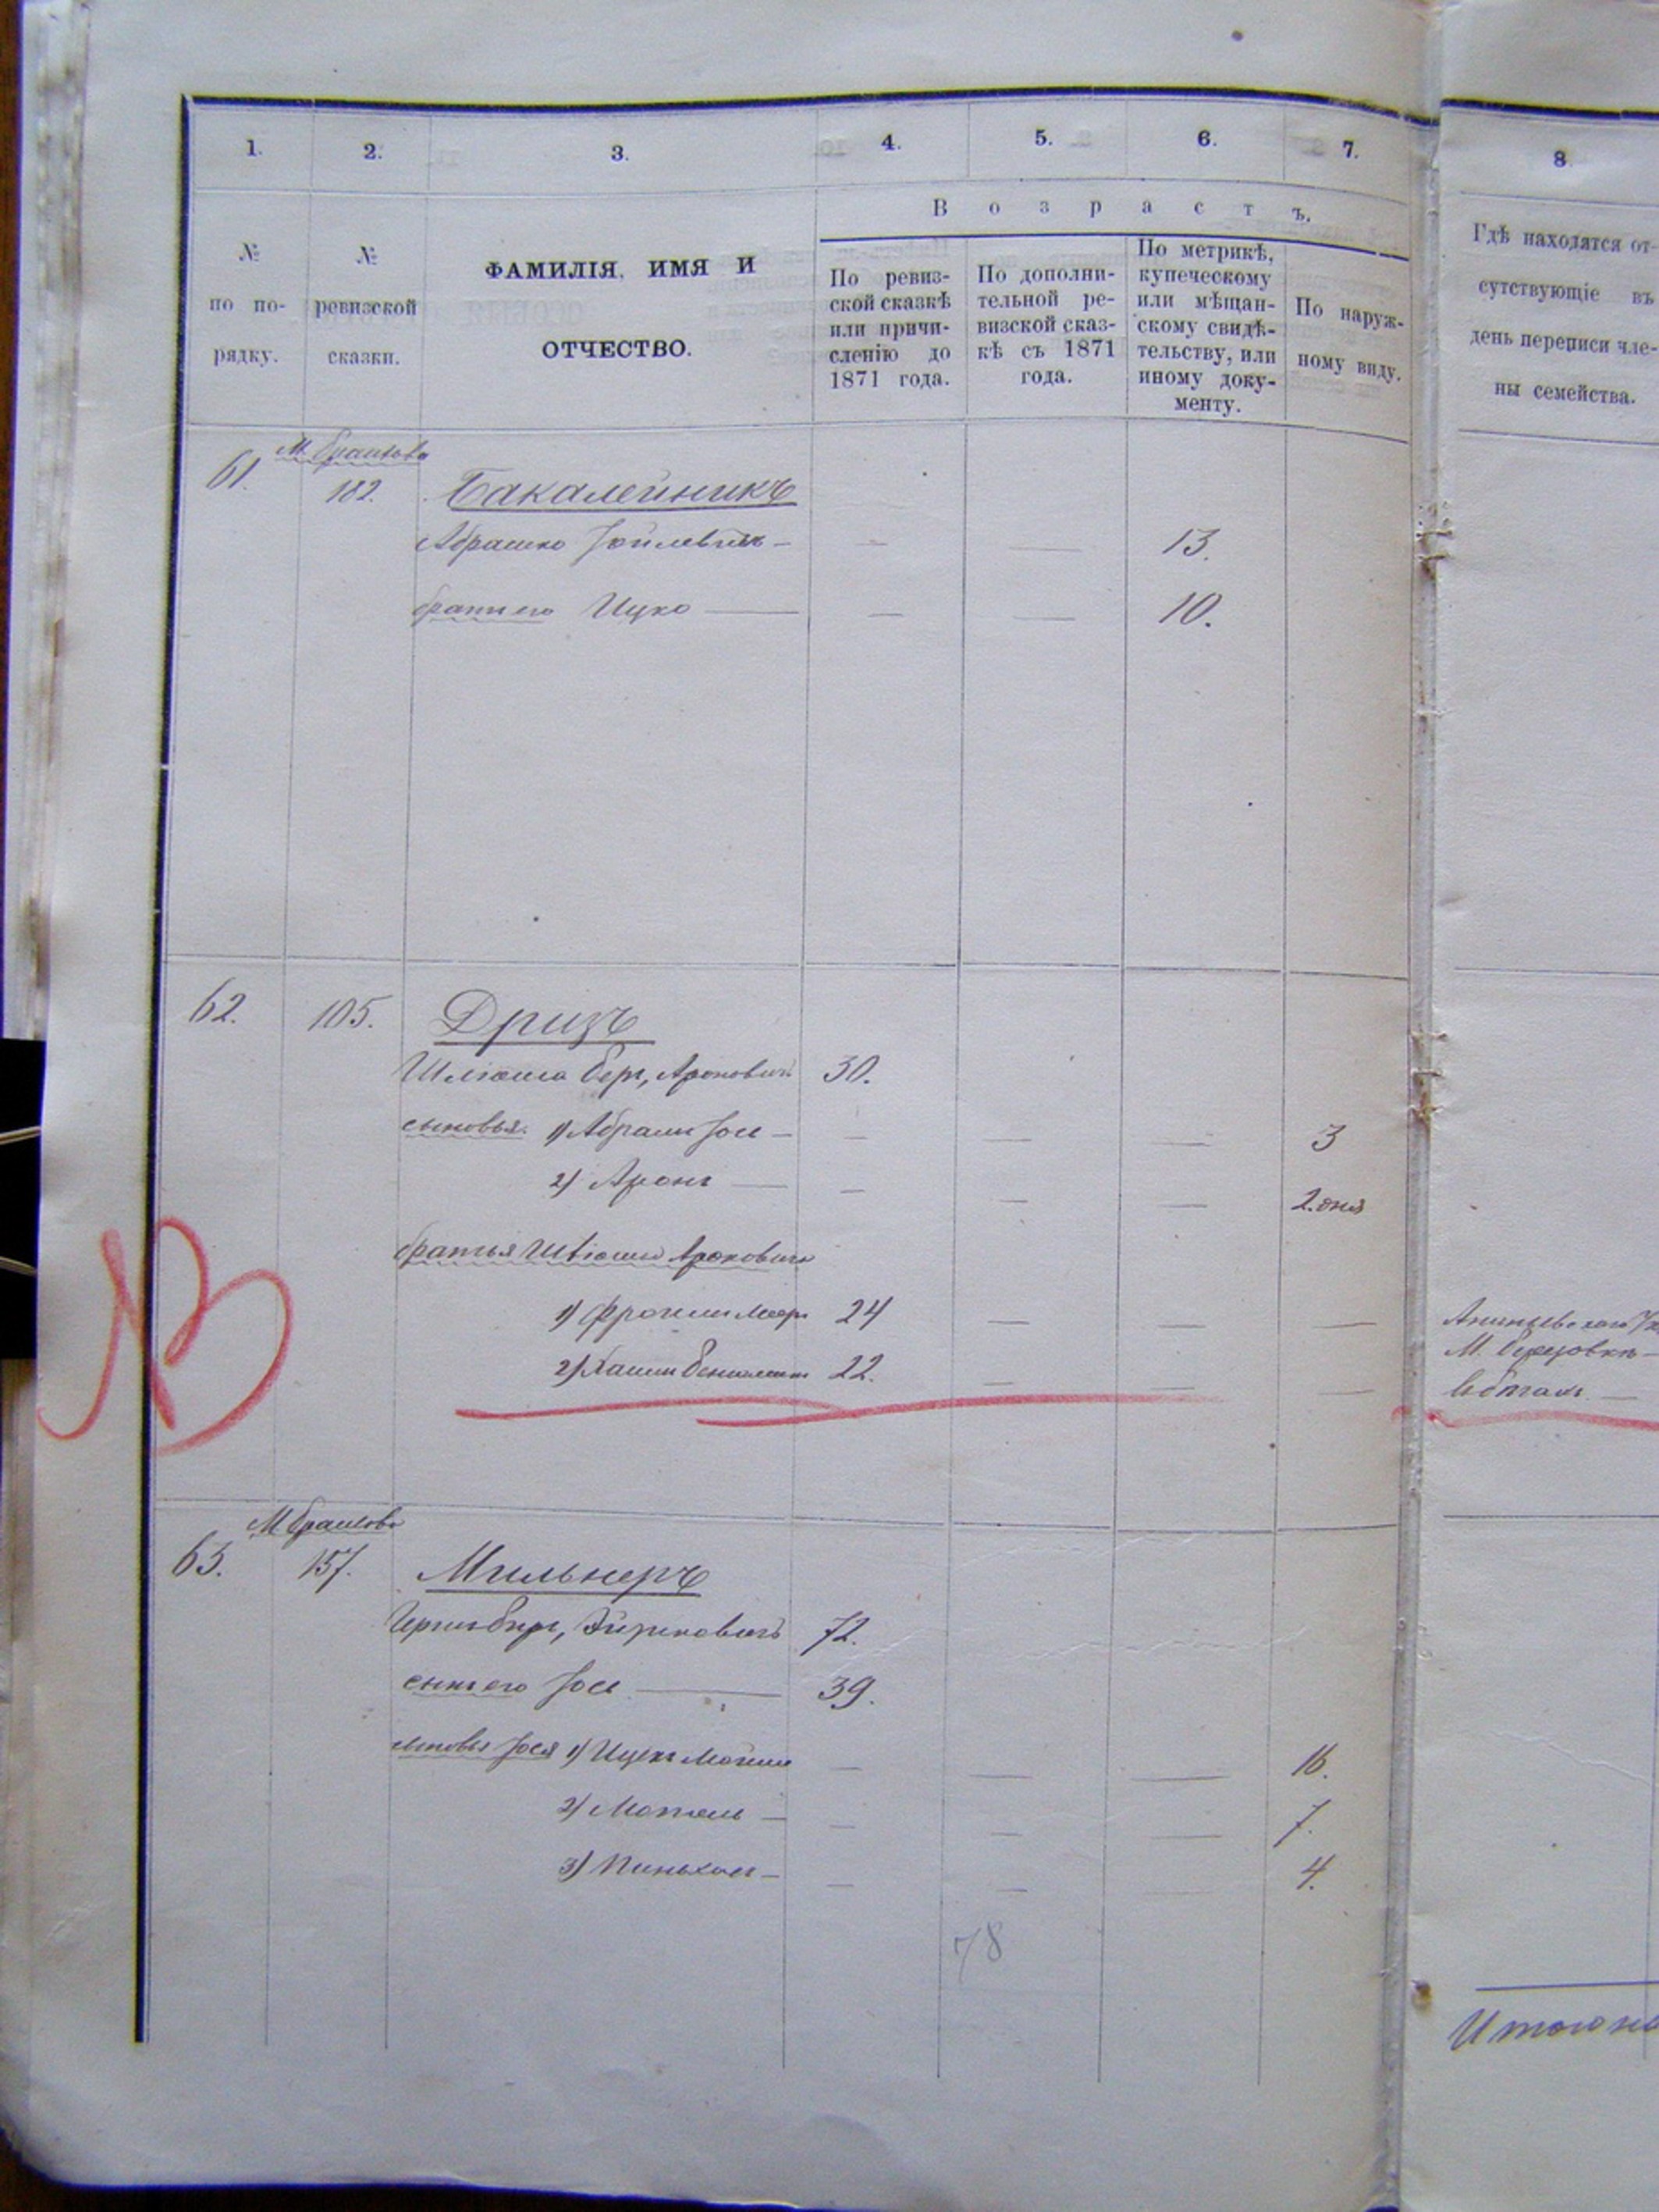 1. 2. 3. 4. 5. 6. 7. 8.
Возрастъ.
№ по по-
рядку.
№
ревизской
сказки.
ФАМИЛІЯ, ИМЯ И
ОТЧЕСТВО.
По ревиз-
ской сказкѣ
или причи-
сленію до
1871 года.
По дополни-
тельной ре-
визской сказ-
кѣ съ 1871
года.
По метрикѣ,
купеческому
или мѣщан-
скому свидѣ-
тельству, или
иному доку-
менту.
По наруж-
ному виду.
Гдѣ находятся от-
сутствующіе въ
день переписи чле-
ны семейства.
М. Браилова
61. 182. Бакалейникъ
Абрашко 13.
братъ его Ицко — 10.
62. 105. Дризъ
Шлiома Беръ, Ароновичъ 30.
сыновья: 1) Абрамъ Јось — 3
2) Аронъ — 2. дня
братья Ароновичи
1) Фроимъ Мееръ 24
2) Хаимъ 22.
М. Березовкѣ —
NB
М. Браилова
63. 157. Мильнеръ
72.
сынъ его Јось — 39.
сыновья Јося 1) Ицекъ Мошко 16.
2) Мотель — 7.
3) Пиньхасъ — 4.
78
Итого на